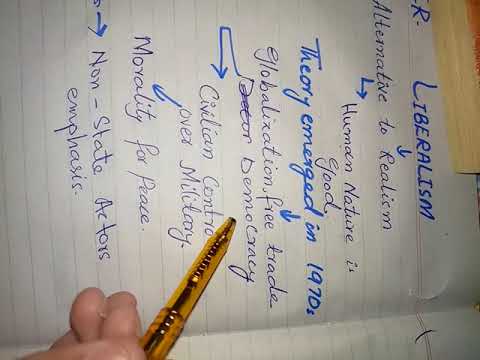 LIBERALISM
Alternative to Realism
Human Nature is
Good
Theory emerged in 1970s
Globalization, free trade
Democracy
Civilian Contro
over Military
Morality for Peace.
Non-State Actors
emphasis.